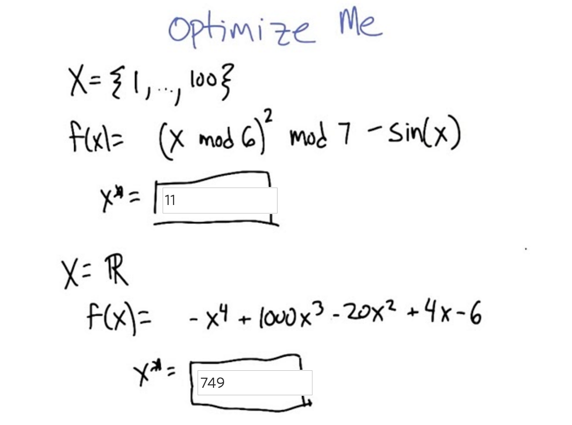 Optimize Me
X = {1, ..., 100}
f(x) = (x mod 6)² mod 7 - sin(x)
x* = 11
X = ℝ
f(x) = -x⁴ + 1000x³ - 20x² + 4x - 6
x* = 749